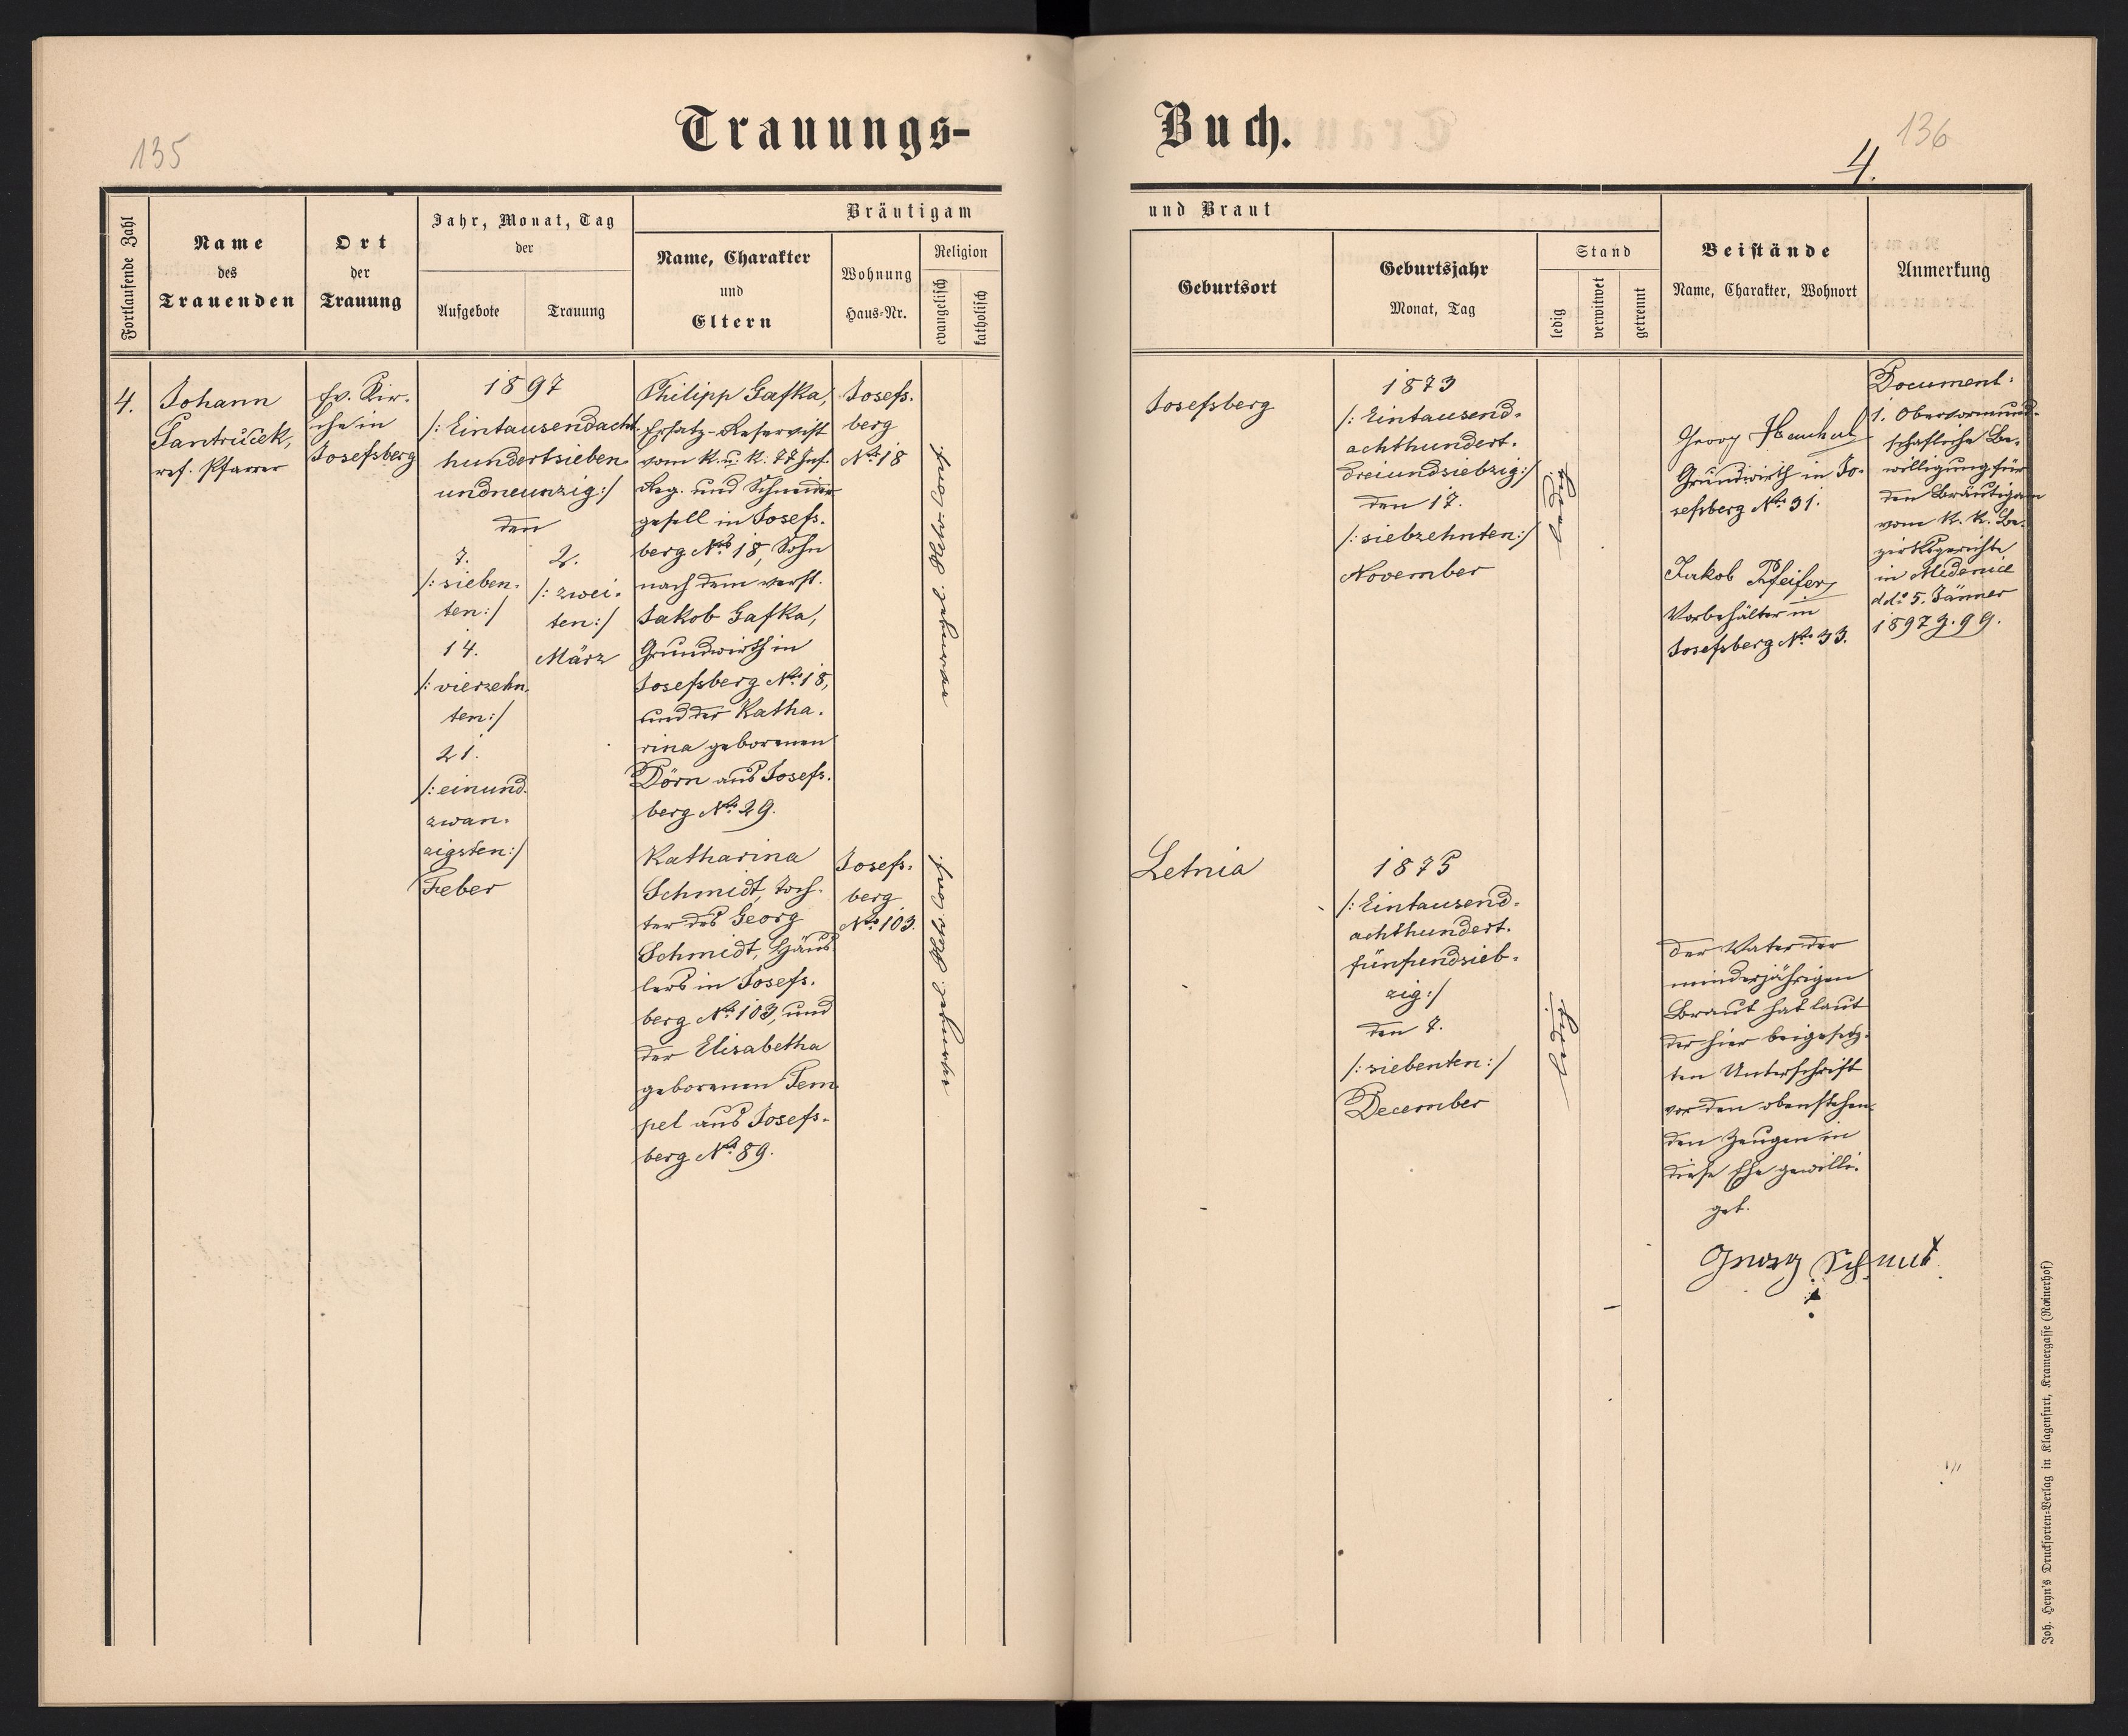 135
Trauungs-
Fortlaufende Zahl
Name
des
Trauenden
Ort
der
Trauung
Jahr, Monat, Tag
der
Aufgebote
Trauung
Bräutigam
Name, Charakter
und
Eltern
Wohnung
Haus-Nr.
Religion
evangelisch
katholisch
4.
Johann
Jantruček,
ref. Pfarrer
Ev. Kir-
che in
Josefsberg
1897
/: Eintausendacht-
hundertsieben
undneunzig :/
den
7.
/: sieben-
ten :/
14.
/: vierzehn-
ten :/
21.
/: einund-
zwan-
zigsten :/
Feber
2.
/: zwei-
ten :/
März
Philipp Gafka,
Ersatz-Reservist
vom K. u. K. 77 Inf.
Reg. und Schneider
gesell in Josefs-
berg No. 18, Sohn
nach dem verst.
Jakob Gafka,
Grundwirth in
Josefsberg No. 18,
und der Katha-
rina geborenen
Dörn aus Josefs-
berg No. 29.
Josefs-
berg
No. 18
evangel. Helv. Conf.
Katharina
Schmidt, Toch-
ter des Georg
Schmidt, Häus
lers in Josefs-
berg No. 103, und
der Elisabetha
geborenen Tem
pel aus Josefs-
berg No. 89.
Josefs-
berg
No. 103.
evangel. Helv. Conf.
Buch.
136
4.
und Braut
Geburtsort
Geburtsjahr
Monat, Tag
Stand
ledig
verwitwet
getrennt
Beistände
Name, Charakter, Wohnort
Anmerkung
Josefsberg
1873
/: Eintausend-
achthundert-
dreiundsiebzig :/
den 17.
/: siebzehnten :/
November
ledig
Georg
Grundwirth in Jo-
sefsberg No. 31.
Jakob Pfeifer,
Vorbehälter in
Josefsberg No. 33.
Document:
1. Obervormund-
schaftliche Be-
willigung für
den Bräutigam
vom K. K. Be-
zirksgerichte
in Medenice
ddo 5. Jänner
1897 Z. 99.
Letnia
1875
/: Eintausend-
achthundert-
fünfundsieb-
zig :/
den 7.
/: siebenten :/
December
ledig
Der Vater der
minderjährigen
Braut hat laut
der hier beigesetz-
ten Unterschrift
vor den obenstehen-
den Zeugen in
diese Ehe gewilli-
get.
Georg Schmit
Joh. Heyn's Drucksorten-Verlag in Klagenfurt, Kramergasse (Rainerhof)